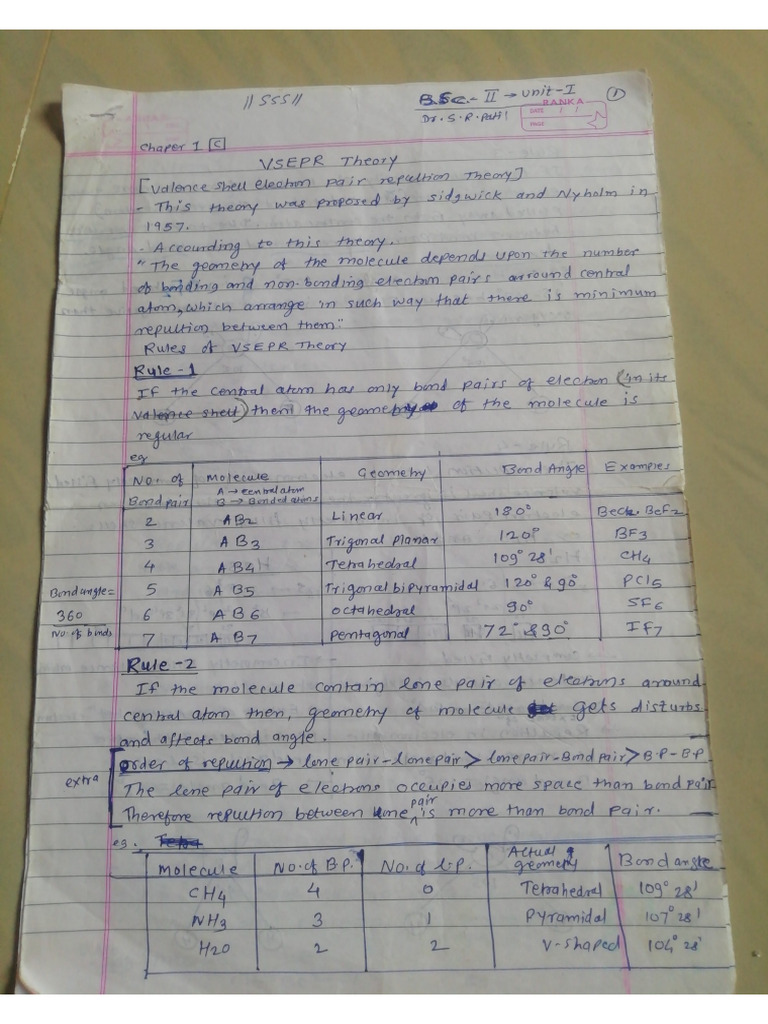 || SSS ||
B.Sc.- II → Unit - I
1
Dr. S. R. Patil
RANKA
DATE / /
PAGE
Chaper 1 [C]
VSEPR Theory
[Valence shell electron pair repultion Theory]
- This theory was proposed by sidgwick and Nyholm in
1957.
- Accounding to this theory.
"The geometry of the molecule depends upon the number
of bonding and non-bonding electron pairs arround central
atom, which arrange in such way that there is minimum
repultion between them."
Rules of VSEPR Theory
Rule - 1
If the central atom has only bond pairs of electron (in its
valence shell) them the geometry of the molecule is
regular
eg
No. of Bond pair | Molecule A → central atom B → Bonded atoms | Geometry | Bond Angle | Examples
2 | AB2 | Linear | 180° | BeF2
3 | AB3 | Trigonal planar | 120° | BF3
4 | AB4 | Tetrahedral | 109° 28' | CH4
5 | AB5 | Trigonal bipyramidal | 120° & 90° | PCl5
6 | AB6 | octahedral | 90° | SF6
7 | AB7 | pentagonal | 72° & 90° | IF7
Bond angle =
360
No. of bonds
Rule - 2
If the molecule contain lone pair of electrons around
central atom then, geometry of molecule gets disturbs
and affects bond angle.
extra
order of repultion → lone pair-lonepair > lonepair-Bond pair > B.P-B.P
The lone pair of electrons occupies more space than bond pair
Therefore repultion between lone pair is more than bond pair.
eg.
Molecule | No. of B.P. | No. of L.P. | Actual geometry | Bond angle
CH4 | 4 | 0 | Tetrahedral | 109° 28'
NH3 | 3 | 1 | Pyramidal | 107° 28'
H2O | 2 | 2 | V-shaped | 104° 28'